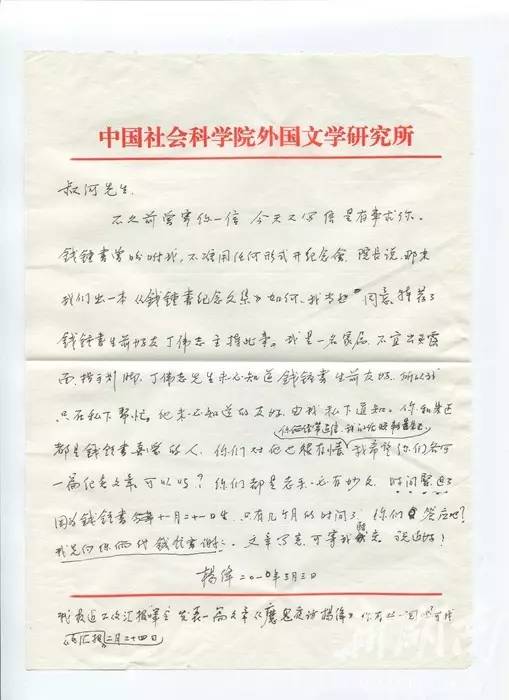 中国社会科学院外国文学研究所
叔河先生,
不久前曾寄你一信 今天又写信是有事求你。
钱锺书曾吩咐我,不准用任何形式开纪念会 院长说,那末
我们出一本《钱锺书纪念文集》如何,我当即同意,特荐了
钱锺书生前好友丁伟志主持此事。我是一名家属,不宜出头露
面指手划脚,丁伟志先生未必知道钱锺书生前友好,所以我
只在私下帮忙,他未必知道的友好,由我私下通知。你和朱正
都是钱锺书喜爱的人,你们对他也很有情 我希望你们各写
一篇纪念文章,可以吗?你们都是老手,必有妙文,时间紧迫了
因为钱锺书 十一月二十一日生,只有几个月的时间了,你们答应吧?
我先向你俩代钱锺书谢谢。文章写完,可寄我家,祝近好!
杨绛 二〇一〇年三月三日
我最近 汇报 发表一篇文章《魔鬼夜访杨绛》你
二月二十四日